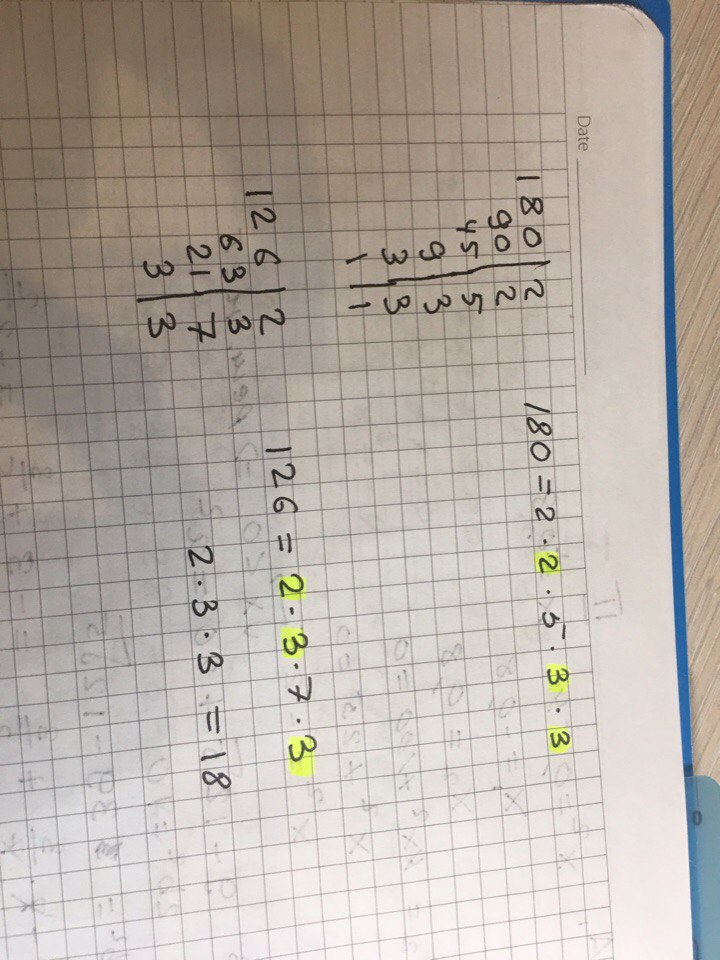 Date
180 | 2
90 | 2
45 | 5
9 | 3
3 | 3
1 | 1
180 = 2 · 2 · 5 · 3 · 3
126 | 2
63 | 3
21 | 7
3 | 3
126 = 2 · 3 · 7 · 3
2 · 3 · 3 = 18